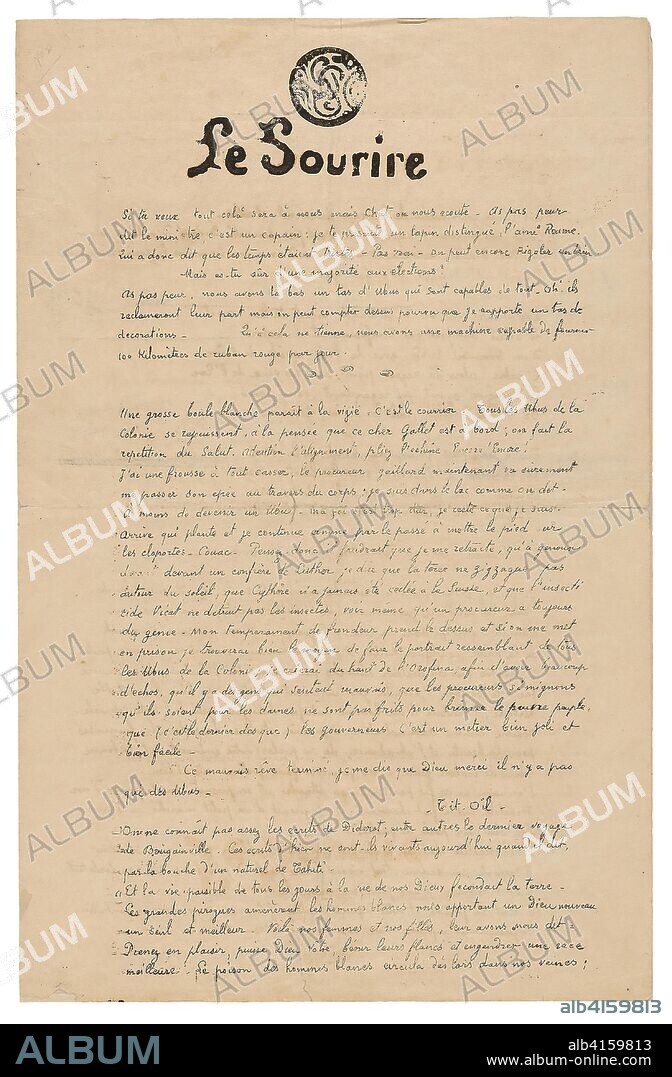 Le Sourire
Si tu veux tout cela sera à nous mais Chut on nous ecoute - As pas peur
dit le ministre, c'est un copain: je te présente un lapin distingué, l'ami Roume.
lui a donc dit que les temps étaient durs - Pas vrai - on peut encore Rigoler
Mais es-tu sûr d'une majorité aux élections?
As pas peur, nous avons là bas un tas d'Ubus qui sont capables de tout. Oh! ils
reclameront leur part mais on peut compter dessus pourvu que je rapporte un tas de
decorations - Qu'à cela ne tienne, nous avons une machine capable de fournir
100 Kilomètres de ruban rouge par jour.
Une grosse boule blanche parait à la vigie. C'est le courrier. Tous les Ubus de la
Colonie se rejouissent, à la pensée que ce cher Gallet est à bord; on fait la
repetition du Salut. Attention l'alignement, pliez l'echine Encore! Encore!
J'ai une frousse à tout casser, le procureur gaillard maintenant va surement
me passer son epée au travers du corps: je suis dans le lac comme on dit.
à moins de devenir un Ubu. Ma foi c'est trop dur, je reste ce que je suis.
Arrive qui plante et je continue comme par le passé à mettre le pied sur
les cloportes. Couac. Pensez donc il faudrait que je me retracte, qu'à genoux
devant un confrère de Luthor je dise que la terre ne zigzague pas
autour du soleil, que Cythère n'a jamais été cedée à la Suisse, et que l'insecti
cide Vicat ne detruit pas les insectes, voir meme qu'un procureur a toujours
du genie. Mon temperament de frondeur prend le dessus et si on me met
en prison je trouverai bien le moyen de faire le portrait ressemblant de tous
les Ubus de la Colonie. Je crierai du haut de l'Orofina, afin d'avoir beaucoup
d'echos, qu'il y a des gens qui sentent mauvais, que les procureurs si mignons
qu'ils soient pour les dames ne sont pas faits pour brimer le pauvre peuple,
que (c'est le dernier des que) les gouverneurs. C'est un metier bien joli et
bien facile -
Ce mauvais rêve terminé, je me dis que Dieu merci il n'y a pas
que des Ubus -
- Tit-Oïl -
On ne connait pas assez les ecrits de Diderot; entre autres le dernier voyage
de Bougainville. Ces ecrits d'hier ne sont-ils vivants aujourd'hui quand il dit,
par la bouche d'un naturel de Tahiti.
Et la vie paisible de tous les jours à la vie de nos Dieux fecondait la terre -
Les grandes pirogues amenèrent les hommes blancs nous apportant un Dieu nouveau
un seul et meilleur. Voilà nos femmes et nos filles, leur avons nous dit.
Prenez en plaisir, puisse Dieu Votre, benir leurs flancs et engendrer une race
meilleure. Le poison des hommes blancs circula dès lors dans nos veines;
ALBUM
alb4159813
ALBUM
alb4159813
www.album-online.com